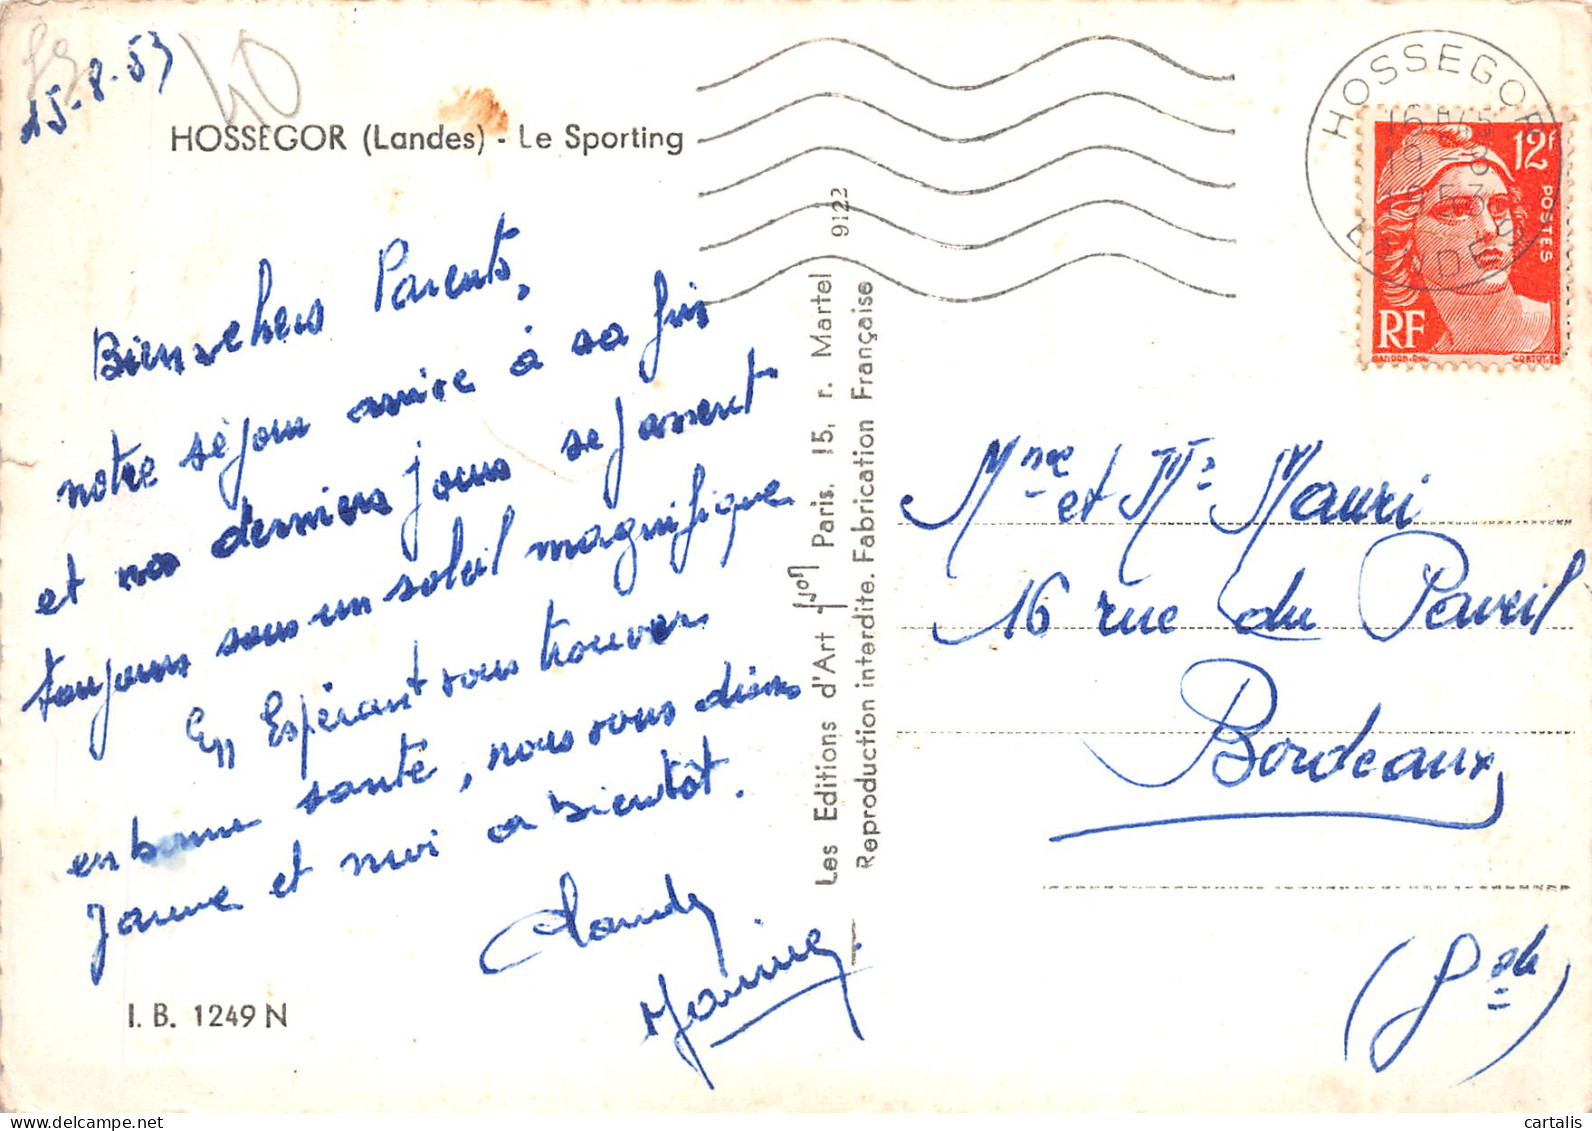 15-8-53
40
HOSSEGOR (Landes) - Le Sporting
Bien chers Parents,
notre séjour arrive à sa fin
et nos derniers jours se passent
toujours sous un soleil magnifique
En Espérant vous trouver
en bonne santé, nous vous disons
Janine et moi à bientôt.
Claude
Janine
I. B. 1249 N
Les Editions d'Art Yvon Paris, 15, r. Martel 9122
Reproduction interdite. Fabrication Française
HOSSEGOR
16H45
19-8
1953
LANDES
12F
POSTES
RF
GANDON.DEL
CORTOT.SC
Mme et Mr Mauri
16 rue du Paveil
Bordeaux
(Gde)
cartalis